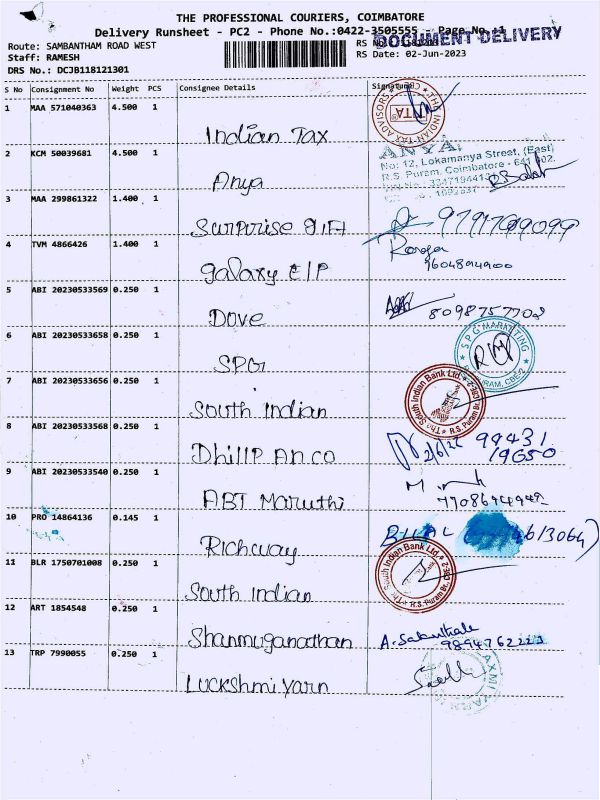 THE PROFESSIONAL COURIERS, COIMBATORE
Delivery Runsheet - PC2 - Phone No.:0422-3505555 - Page No.:1
DOCUMENT DELIVERY
Route: SAMBANTHAM ROAD WEST
RS No
Staff: RAMESH
RS Date: 02-Jun-2023
DRS No.: DCJB118121301
S No Consignment No Weight PCS Consignee Details Signature
1 MAA 571040363 4.500 1
Indian Tax
THE INDIAN TAX ADVISORS
2 KCM 50039681 4.500 1
Anya
ANYA
No: 12, Lokamanya Street, (East)
R.S. Puram, Coimbatore - 641 002.
3 MAA 299861322 1.400 1
Surprise gift
4 TVM 4866426 1.400 1
galaxy E/P
9604894900
5 ABI 20230533569 0.250 1
Dove
8098757702
6 ABI 20230533658 0.250 1
SPG
SPG MARKETING
7 ABI 20230533656 0.250 1
South Indian
The South Indian Bank Ltd.
R.S. Puram Br. CBE-2
8 ABI 20230533568 0.250 1
Dhillp An co
2/6/22 99431
19650
9 ABI 20230533540 0.250 1
ABT Maruthi
7708694942
10 PRO 14864136 0.145 1
Richway
BILAL
11 BLR 1750701008 0.250 1
South Indian
The South Indian Bank Ltd.
R.S. Puram Br. CBE-2
12 ART 1854548 0.250 1
Shanmuganathan
A. Sakunthala
9894762223
13 TRP 7990055 0.250 1
Luckshmi yarn